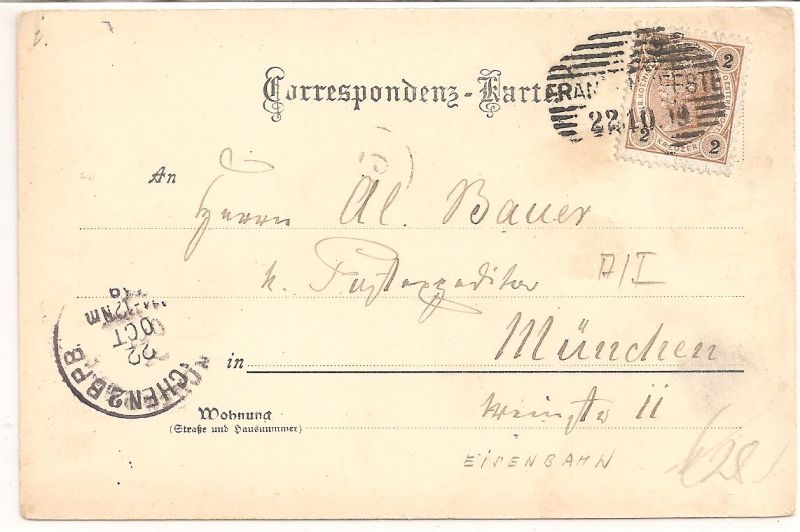 Correspondenz-Karte
FRAN ESTE
22.10 99
2
2 KREUZER 2
An
Herrn Al. Bauer
k. Postexpeditor
A/I
in München
11
Wohnung
(Straße und Hausnummer)
EISENBAHN
CHEN 2.B.P.B
22
OCT
11-12 Nm